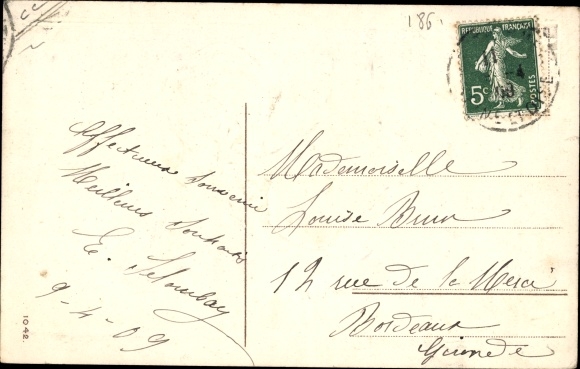 186.
REPUBLIQUE FRANÇAISE
5c
POSTES
Affectueux Souvenir
Meilleurs Souhaits
E.
9-4-09
Mademoiselle
Louise Brun
12 rue de la Merci
Bordeaux
Gironde
1042.